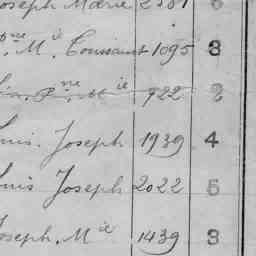 oseph Marie 2581 6
ne. M. ie Toussaint 1095 3
ne. M ie 922 2
uis. Joseph 1939 4
uis Joseph 2022 5
oseph. M ie 1439 3